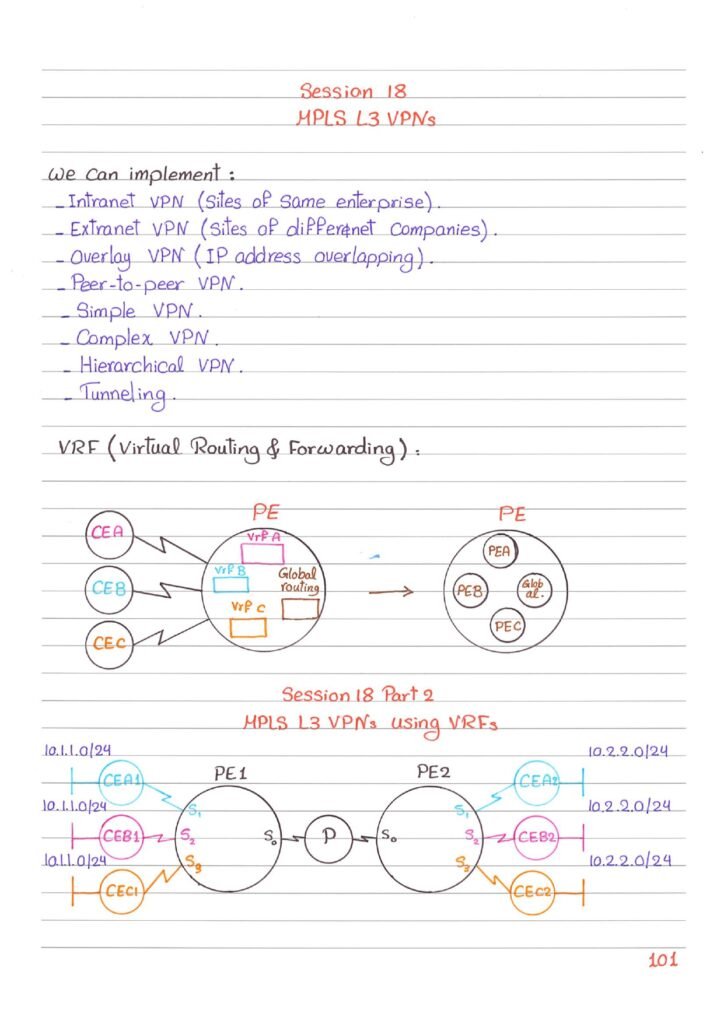 Session 18
MPLS L3 VPNs
We Can implement :
- Intranet VPN (Sites of Same enterprise).
- Extranet VPN (Sites of differenet Companies).
- Overlay VPN (IP address overlapping).
- Peer-to-peer VPN.
- Simple VPN.
- Complex VPN.
- Hierarchical VPN.
- Tunneling.
VRF (Virtual Routing & Forwarding) :
PE
PE
CEA
CEB
CEC
Vrf A
Vrf B
Vrf C
Global
routing
PEA
PEB
Glob
al.
PEC
Session 18 Part 2
MPLS L3 VPNs using VRFs
10.1.1.0/24
CEA1
PE1
PE2
CEA2
10.2.2.0/24
S1
S1
10.1.1.0/24
CEB1
S2
S0
P
S0
S2
CEB2
10.2.2.0/24
10.1.1.0/24
CEC1
S3
S3
CEC2
10.2.2.0/24
101